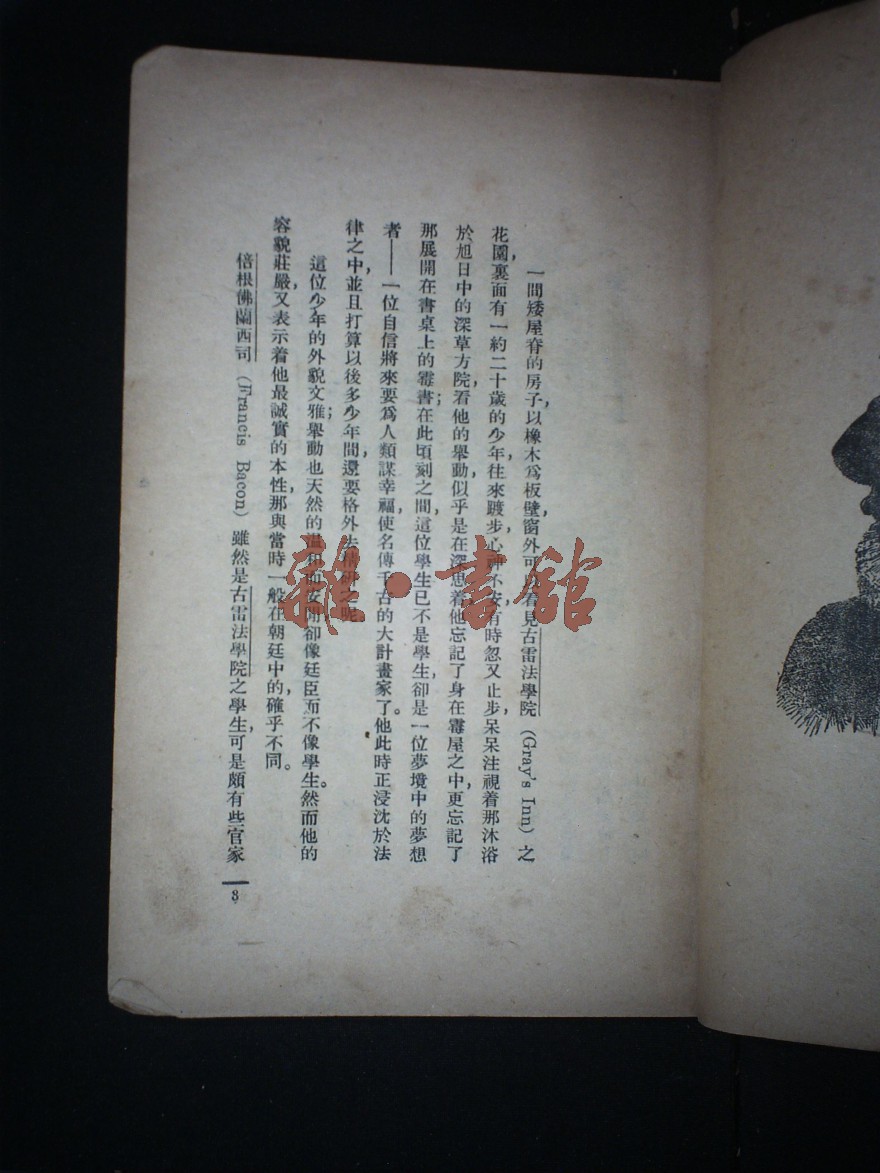 一間矮屋脊的房子，以橡木爲板壁，窗外可以看見古雷法學院，(Gray's Inn) 之
花園，裏面有一約二十歲的少年往來踱步，心神不安，有時忽又止步，呆呆注視着那沐浴
於旭日中的深草方院，看他的舉動，似乎是在深思着，他忘記了身在霉屋之中，更忘記了
那展開在書桌上的霉書；在此頃刻之間，這位學生已不是學生，卻是一位夢境中的夢想
者——一位自信將來要爲人類謀幸福，使名傳千古的大計畫家了。他此時正浸沈於法
律之中，並且打算以後多少年間，還要格外去精研之呢。
這位少年的外貌文雅；舉動也天然的溫和而安閒，卻像廷臣而不像學生。然而他的
容貌莊嚴，又表示着他最誠實的本性，那與當時一般在朝廷中的，確乎不同。
倍根佛蘭西司 (Francis Bacon) 雖然是古雷法學院之學生，可是頗有些官家
3
雜·書館